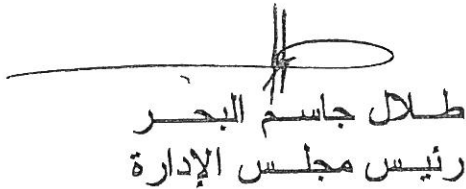 طلال جاسم البحر
رئيس مجلس الإدارة